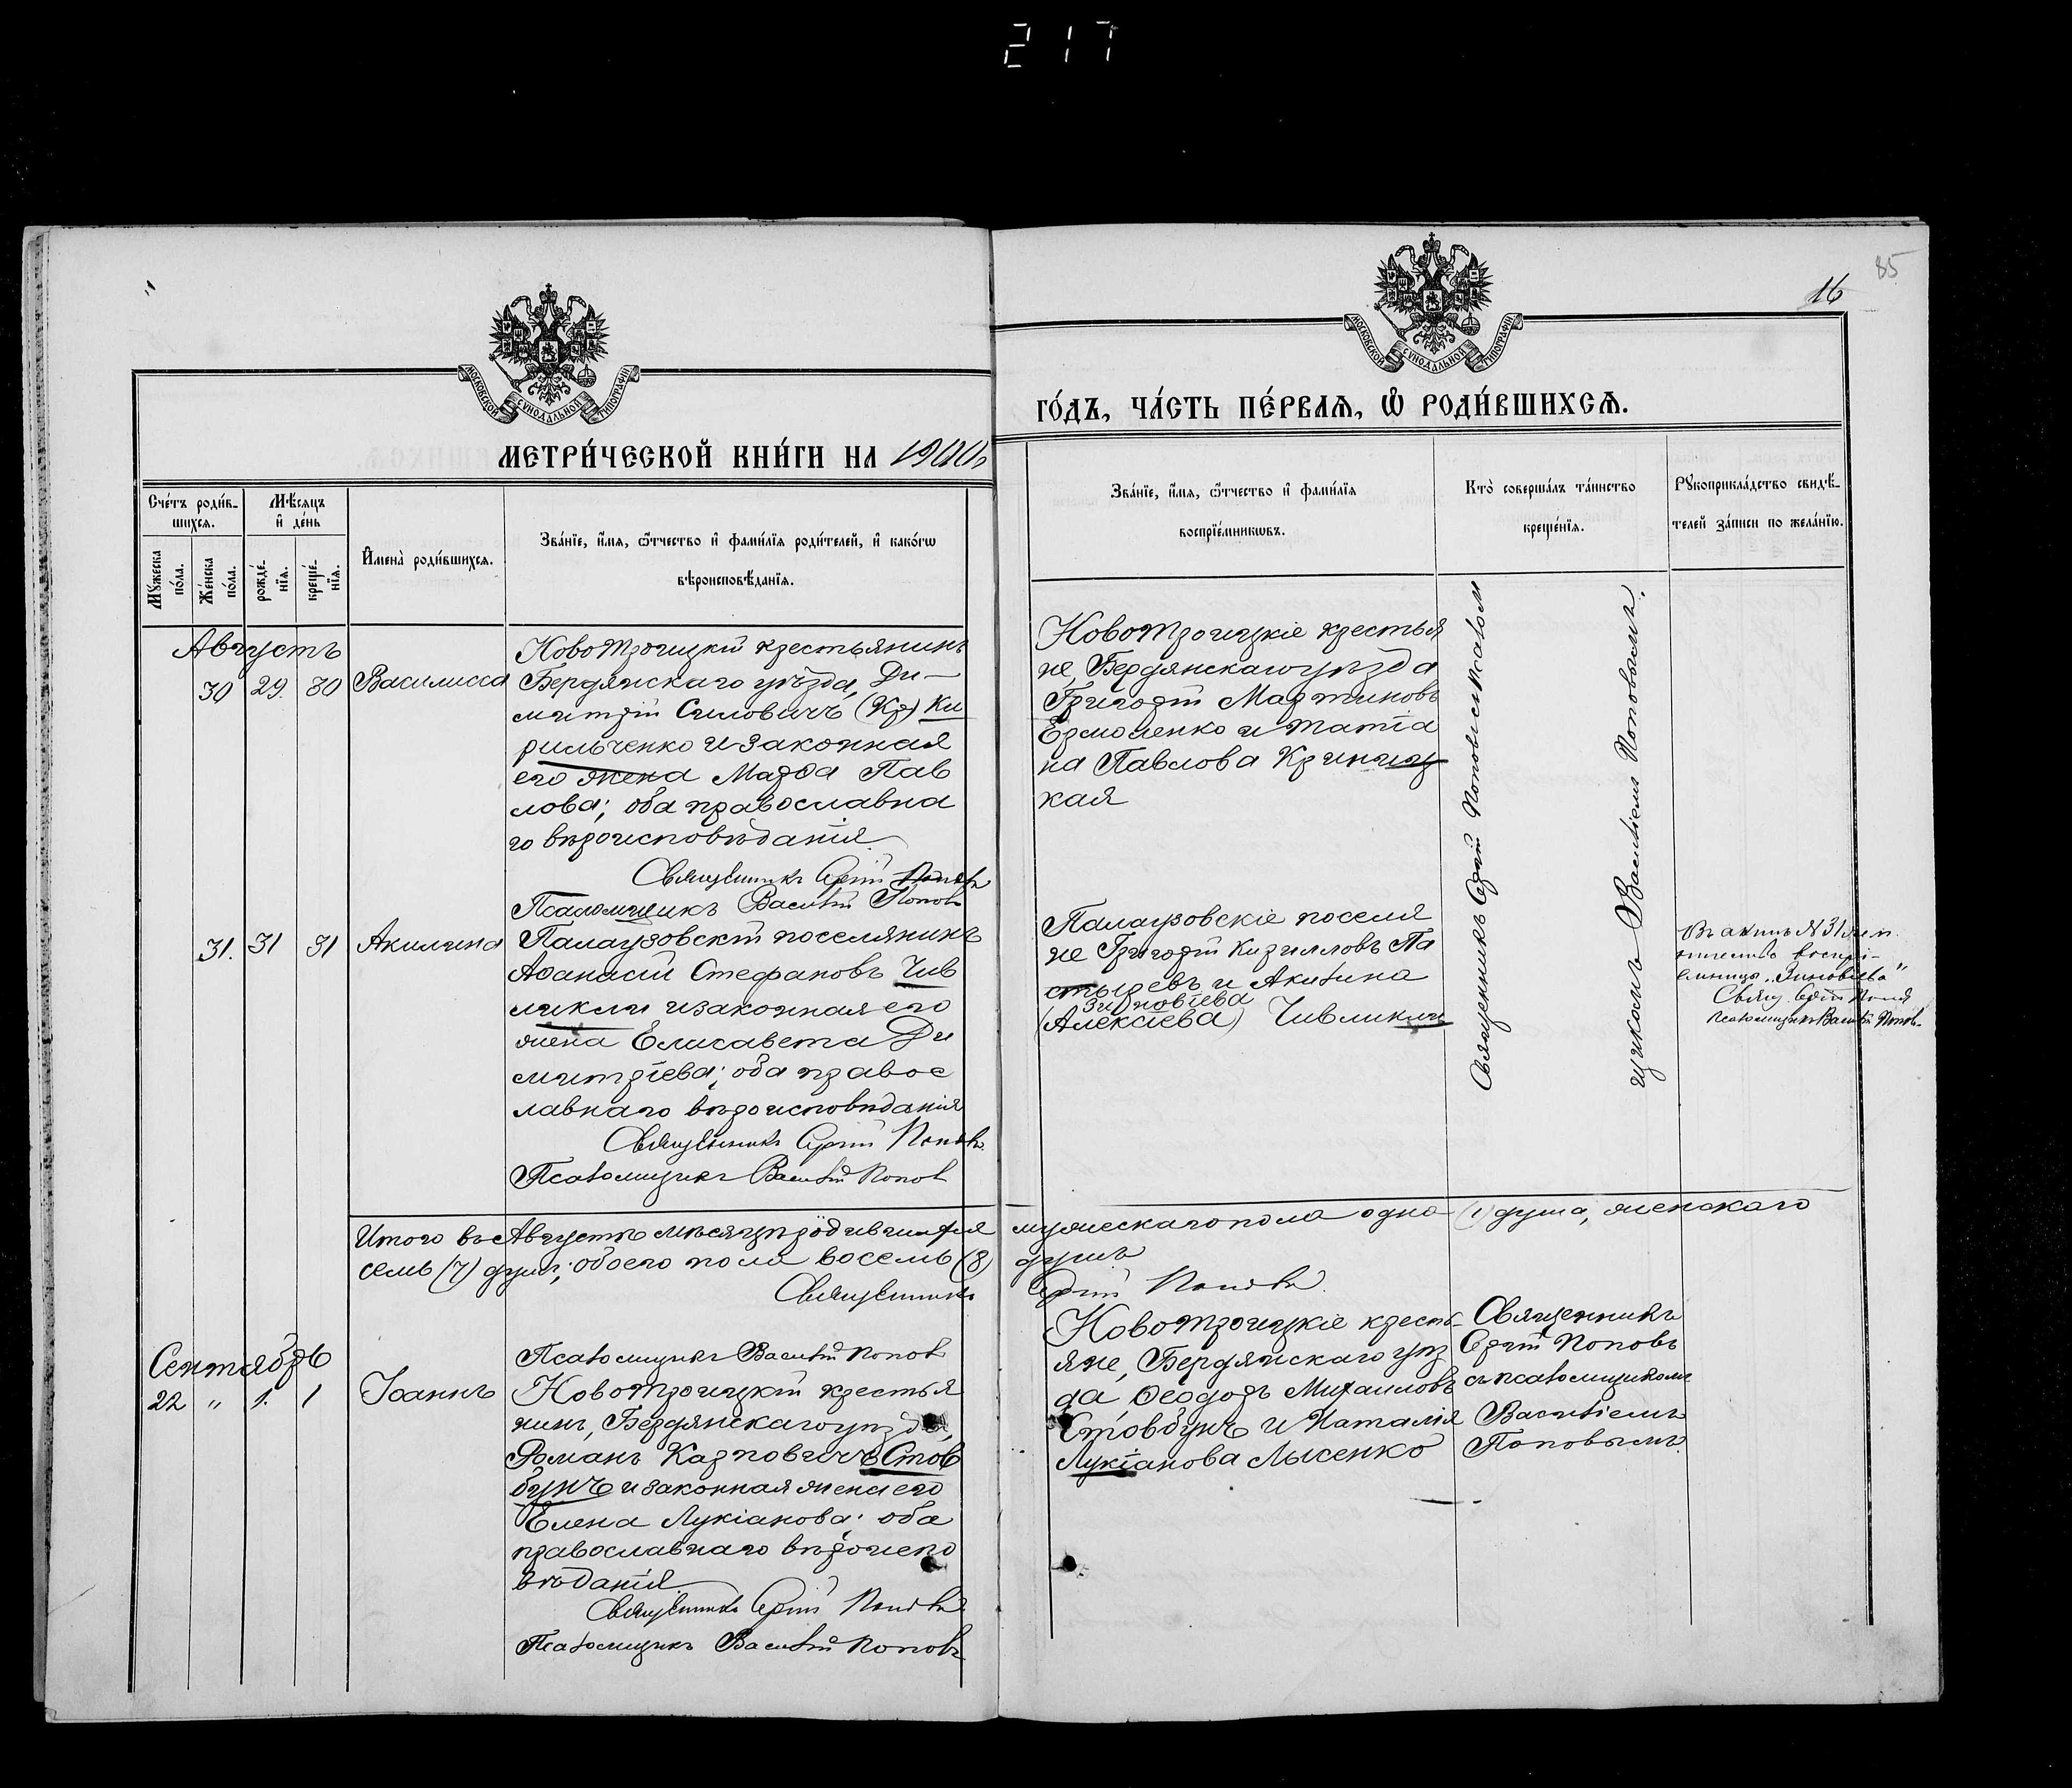 217
85
16
МОСКОВСКОЙ СѴНОДАЛЬНОЙ ТИПОГРАФІИ
МОСКОВСКОЙ СѴНОДАЛЬНОЙ ТИПОГРАФІИ
МЕТРИ́ЧЕСКОЙ КНИ́ГИ НА 1900
ГО́ДЪ, ЧА́СТЬ ПЕ́РВАѦ, Ѡ҆ РОДИ́ВШИХСѦ.
Сче́тъ роди́в-
шихсѧ.
Мꙋ́жеска по́ла.
Же́нска по́ла.
Мѣ́сѧцъ
и҆ де́нь
рожде́-
нїѧ.
креще́-
нїѧ.
И҆мена̀ роди́вшихсѧ.
Зва́нїе, и҆́мѧ, ѻ҆́тчество и҆ фами́лїѧ роди́телей, и҆ како́гѡ
вѣроисповѣ́данїѧ.
Зва́нїе, и҆́мѧ, ѻ҆́тчество и҆ фами́лїѧ
воспрїе́мникѡвъ.
Кто̀ соверша́лъ та́инство
креще́нїѧ.
Рꙋкоприкла́дство свидѣ́-
телей за́писи по жела́нїю.
Августъ
30 29. 30 Василисса
Новотроицкій крестьянинъ
Бердянскаго уѣзда, Ди-
митрій Силовичъ (Кр) Ки
рильченко и законная
его жена Марѳа Пав
лова; оба православна
го вѣроисповѣданія
Священникъ Сергій Поповъ
Псаломщикъ Василій Поповъ
Новотроицкіе крестья
не, Бердянскаго уѣзда
Григорій Мартиновъ
Ермоленко и Татіа
на Павлова Криниц
кая
Священникъ Сергій Поповъ съ псалом
щикомъ Василіемъ Поповымъ.
31. 31 31 Акилина
Палаузовскій поселянинъ
Аѳанасій Стефановъ Чив
ликли и законная его
жена Елисавета Ди
митріева; оба правос
лавнаго вѣроисповѣданія
Священникъ Сергій Поповъ
Псаломщикъ Василій Поповъ
Палаузовскіе поселя
не Григорій Кирилловъ Па
стыревъ и Акилина
Зиновіева
(Алексіева) Чивликли
Въ актѣ № 31
отчество воспрі-
емницы „Зиновіева"
Свящ. Сергій Поповъ
Псаломщикъ Василій Поповъ
Итого въ Августѣ мѣсяцѣ родившихся мужескаго пола одна (1) душа, женскаго
семь (7) душъ; обоего пола восемь (8) душъ
Священникъ Сергій Поповъ.
Псаломщикъ Василій Поповъ
Сентябрь
22 " 1. 1 Іоаннъ
Новотроицкій крестья
нинъ, Бердянскаго уѣзда,
Романъ Карповичъ Стов
бунъ и законная жена его
Елена Лукіанова; оба
православнаго вѣроиспо
вѣданія
Священникъ Сергій Поповъ
Псаломщикъ Василій Поповъ
Новотроицкіе кресть-
яне, Бердянскаго уѣз
да, Ѳеодоръ Михаиловъ
Стовбунъ и Наталія
Лукіанова Лысенко
Священникъ
Сергій Поповъ
съ псаломщикомъ
Василіемъ
Поповымъ.